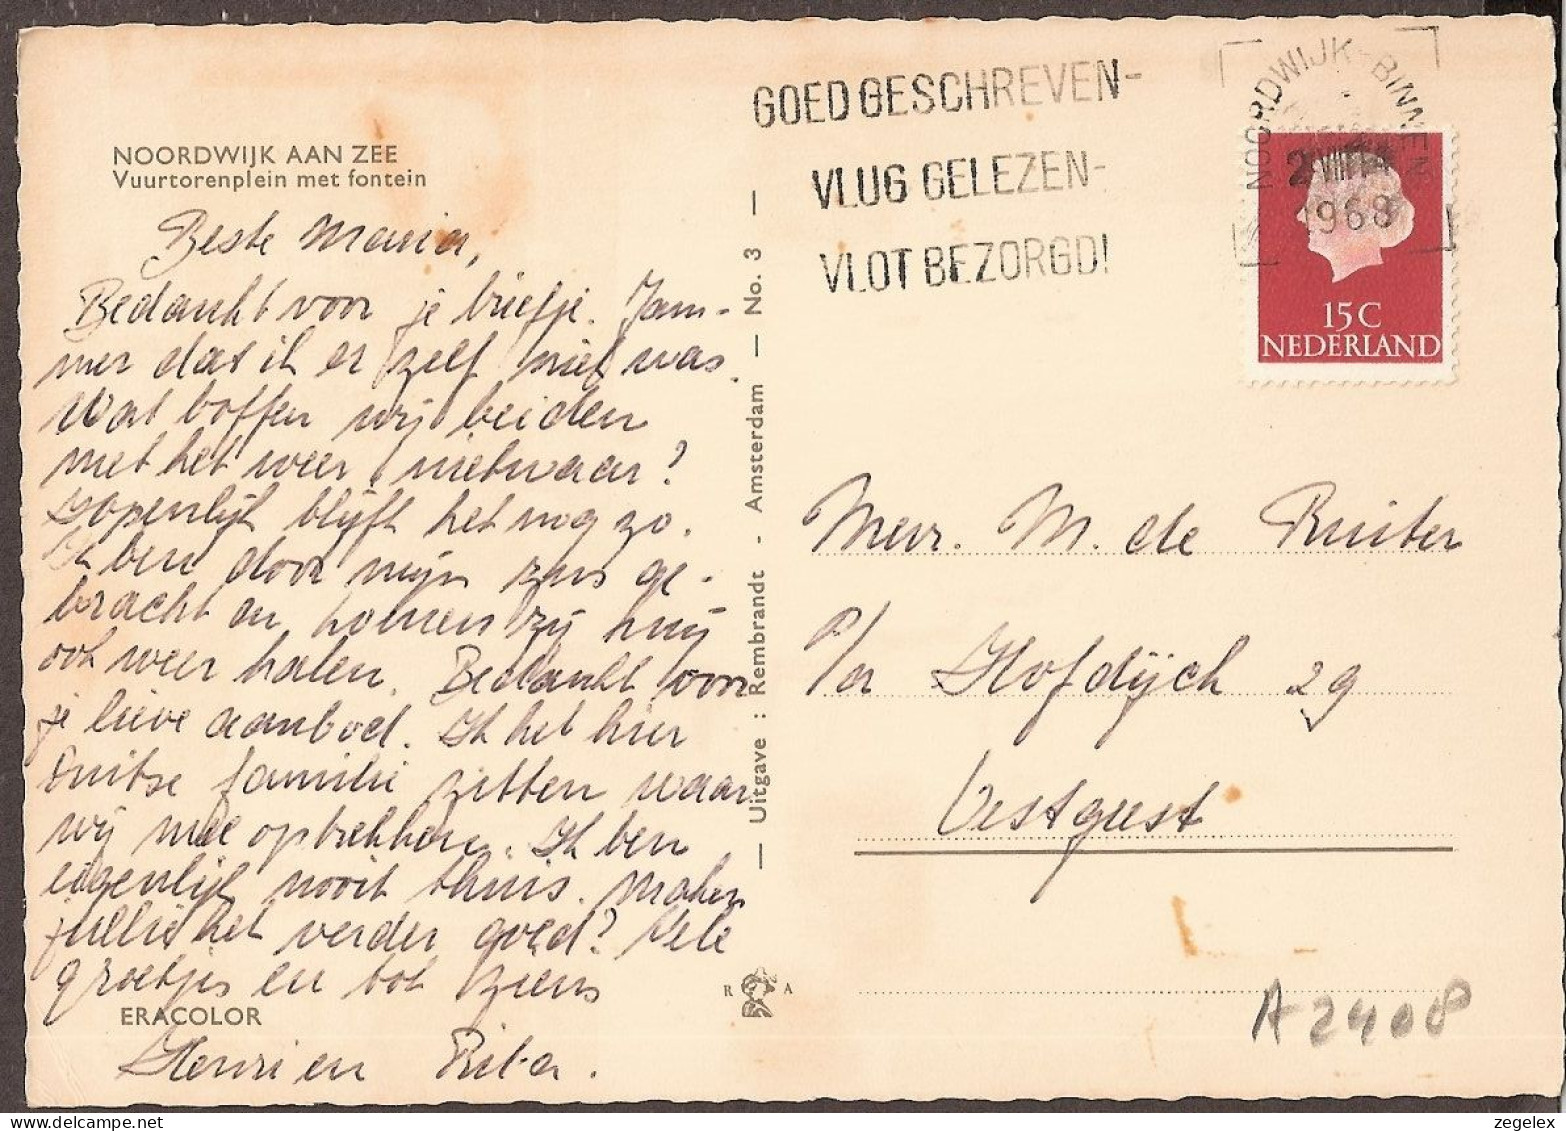 NOORDWIJK AAN ZEE
Vuurtorenplein met fontein
Beste Maria,
Bedankt voor je briefje. Jam-
mer dat ik er zelf niet was.
Wat boffen wij beiden
met het weer, nietwaar?
Hopenlijk blijft het nog zo.
Ik ben door mijn zus ge-
bracht en komen zij mij
ook weer halen. Bedankt voor
je lieve aanbod. Ik het hier
Duitse familie zitten waar
wij mee optrekken. Ik ben
eigenlijk nooit thuis. Maken
jullie het verder goed? Vele
groetjes en tot ziens
ERACOLOR
Henri en Rita.
— Uitgave : Rembrandt - Amsterdam — No. 3 —
R A
GOED GESCHREVEN-
VLUG GELEZEN-
VLOT BEZORGD!
NOORDWIJK-BINNEN
1968
15C
NEDERLAND
Mevr. M. de Ruiter
p/a Hofdijck 29
Oestgeest
A2408
zegelex